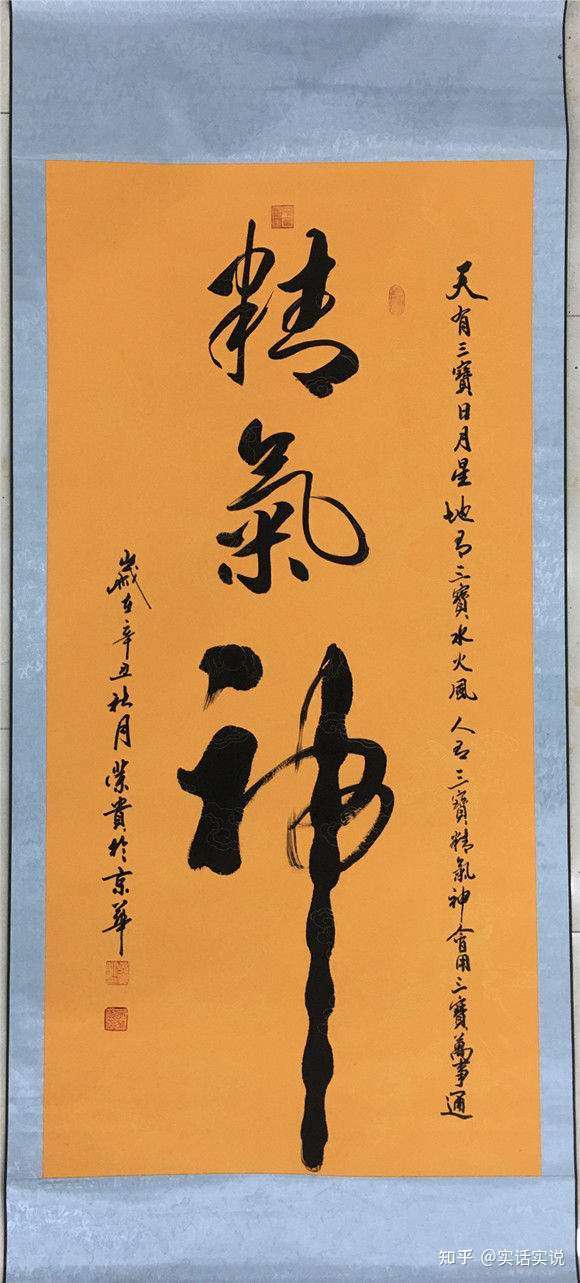 天有三寶日月星地有三寶水火風人有三寶精氣神會用三寶萬事通
精氣神
歲在辛丑杜月榮貴於京華
知乎 @实话实说